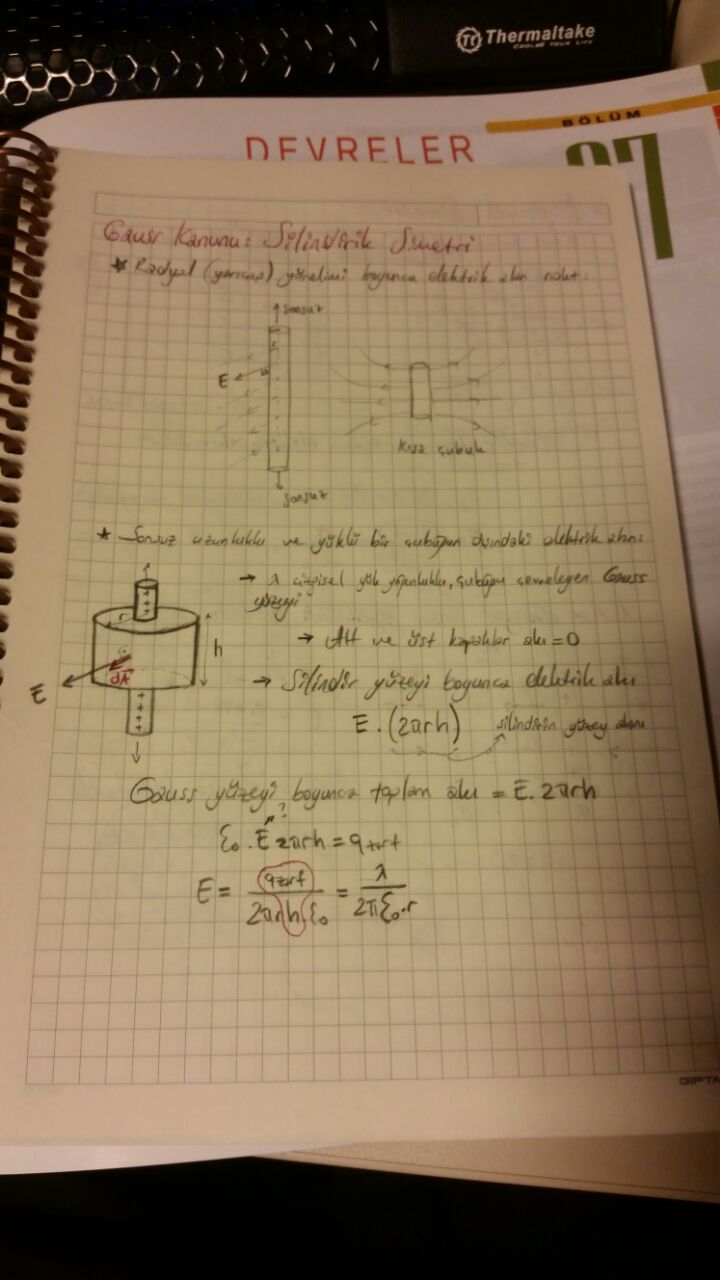 Thermaltake
COOLED YOUR LIFE
BÖLÜM
DEVRELER
27
Gauss Kanunu: Silindirik Simetri
* Radyal (yarıçap) yönelimi boyunca elektrik alan
sonsuz
r
E
Kısa çubuk
sonsuz
* Sonsuz uzunluklu ve yüklü bir çubuğun dışındaki elektrik alan:
→ λ çizgisel yük yoğunluklu, çubuğu çevreleyen Gauss
yüzeyi
r
h
→ Alt ve üst kapaklar akı = 0
dA
E
→ Silindir yüzeyi boyunca elektrik akı
E . (2πrh) silindirin yüzey alanı
Gauss yüzeyi boyunca toplam akı = E. 2πrh
?
ε₀ . E 2πrh = qzarf
E = qzarf / 2πrhε₀ = λ / 2πε₀.r
GIPTA